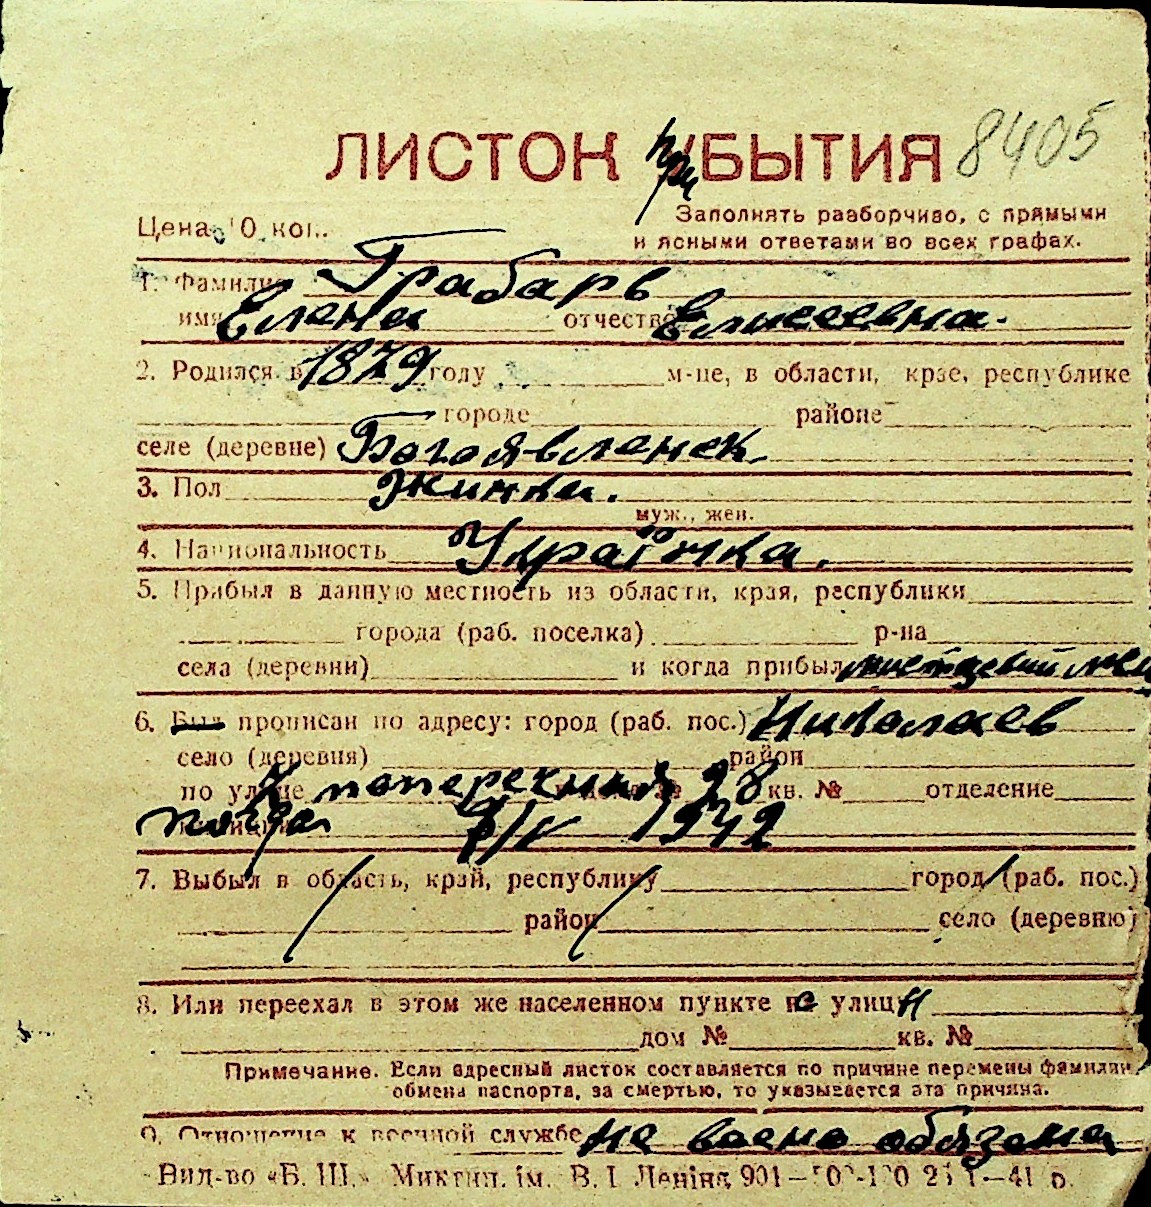 ЛИСТОК при УБЫТИЯ 8405
Цена 10 коп.
Заполнять разборчиво, с прямыми
и ясными ответами во всех графах.
1. Фамилия Грабарь
имя Елена отчество Елисеевна.
2. Родился в 1879 году м-це, в области, крае, республике
городе районе
селе (деревне) Богоявленск
3. Пол жинка.
муж., жен.
4. Национальность Українка.
5. Прибыл в данную местность из области, края, республики
города (раб. поселка) р-на
села (деревни) и когда прибыл
6. Был прописан по адресу: город (раб. пос.) Николаев
село (деревня) район
по улице поперекиная 28 кв. № отделение
1942
7. Выбыл в область, край, республику город (раб. пос.)
район село (деревню)
8. Или переехал в этом же населенном пункте на улицу
дом № кв. №
Примечание. Если адресный листок составляется по причине перемены фамилии,
обмена паспорта, за смертью, то указывается эта причина.
9. Отношение к военной службе не военно обязана
Вид-во «Б. Ш.» Миктип. ім. В. І Леніна 901